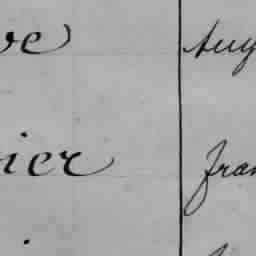 ve Aug
ier fran